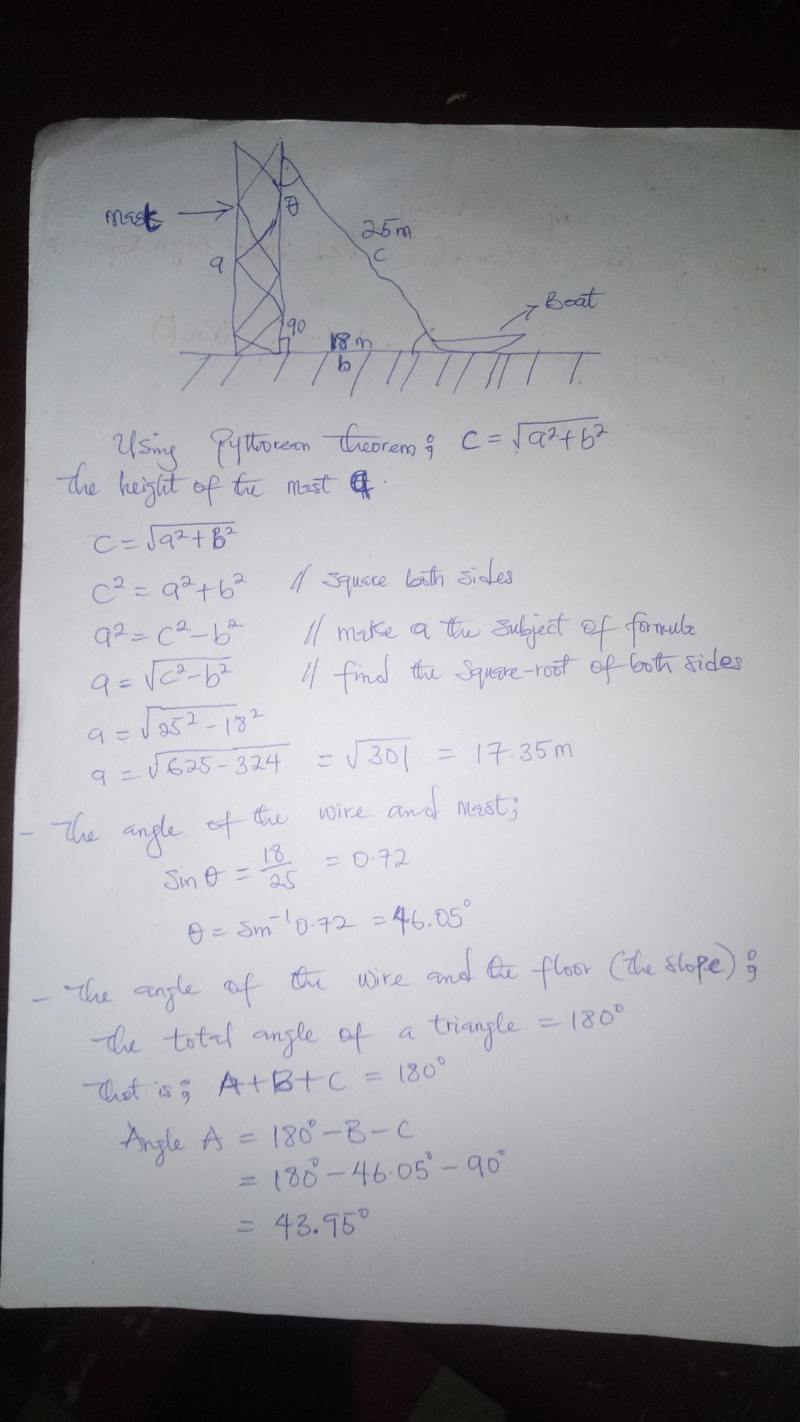 mast
θ
25m
c
a
Boat
90
18m
b
Using Pythorean theorem; c = √a²+b²
The height of the mast a.
c = √a²+b²
c² = a²+b² // square both sides
a² = c²-b² // make a the subject of formula
a = √c²-b² // find the square-root of both sides
a = √25²-18²
a = √625-324 = √301 = 17.35m
- The angle of the wire and mast;
Sin θ = 18/25 = 0.72
θ = Sin⁻¹0.72 = 46.05°
- The angle of the wire and the floor (the slope);
The total angle of a triangle = 180°
That is; A+B+C = 180°
Angle A = 180°-B-C
= 180°-46.05°-90°
= 43.95°